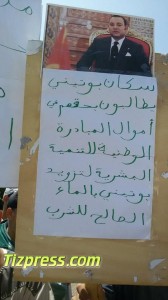 سكان بوتيني
يطالبون بحقهم في
أموال المبادرة
الوطنية للتنمية
البشرية لتزويد
بوتيني بالماء
الصالح للشرب
Tizpress.com
Tizpress.com